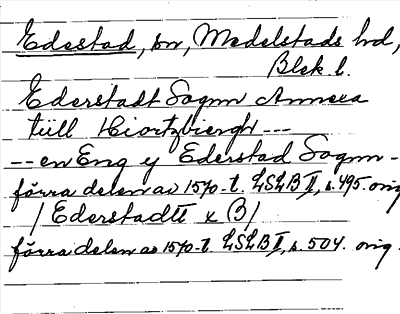 Edestad, sn, Medelstads hd,
Blek. l.
Ederstadt Sognn Annexa
tiill Hiortzbiergh ---
-- en Eng y Ederstad Sognn -
förra delen av 1570-t. LSLB II, s. 495. orig.
/ Ederstadtt x B /
förra delen av 1570-t. LSLB II, s. 504. orig.